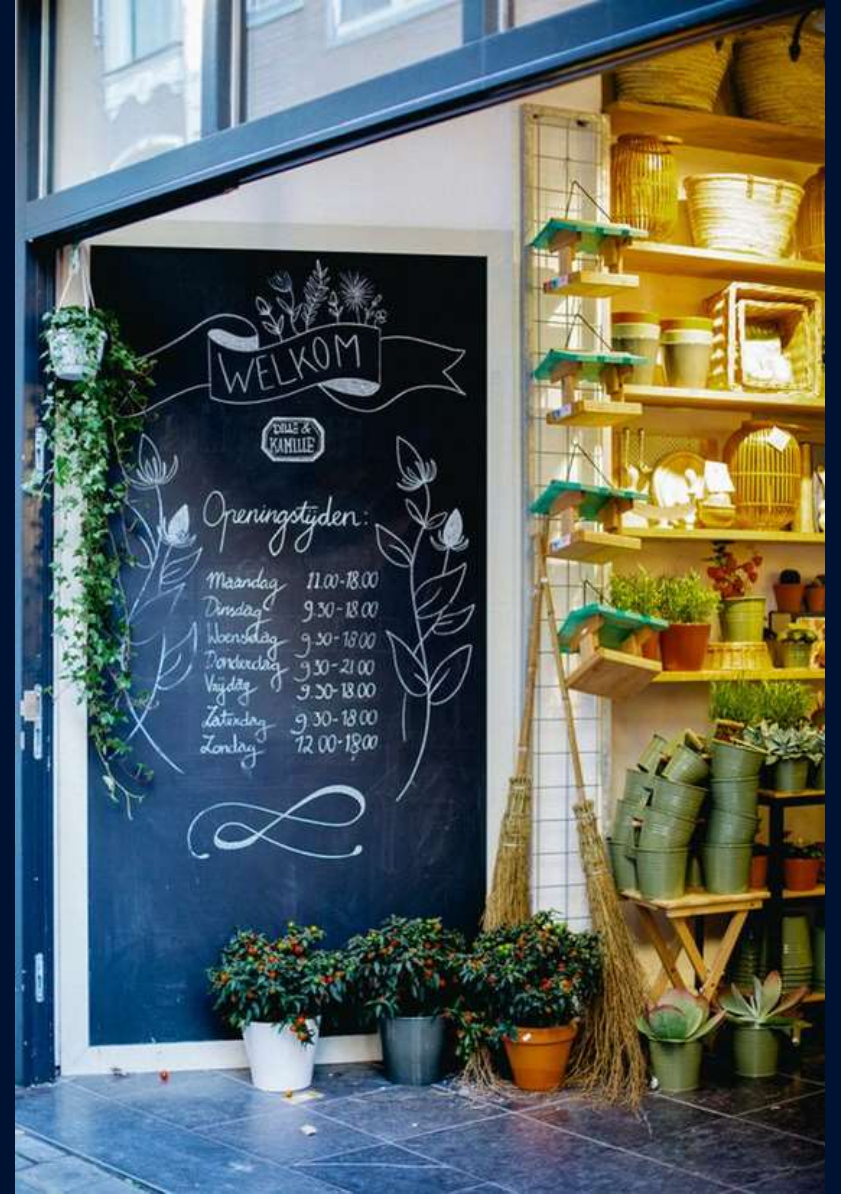 WELKOM
DILLE &
KAMILLE
Openingstijden:
Maandag 11.00-18.00
Dinsdag 9.30-18.00
Woensdag 9.30-18.00
Donderdag 9.30-21.00
Vrijdag 9.30-18.00
Zaterdag 9.30-18.00
Zondag 12.00-18.00